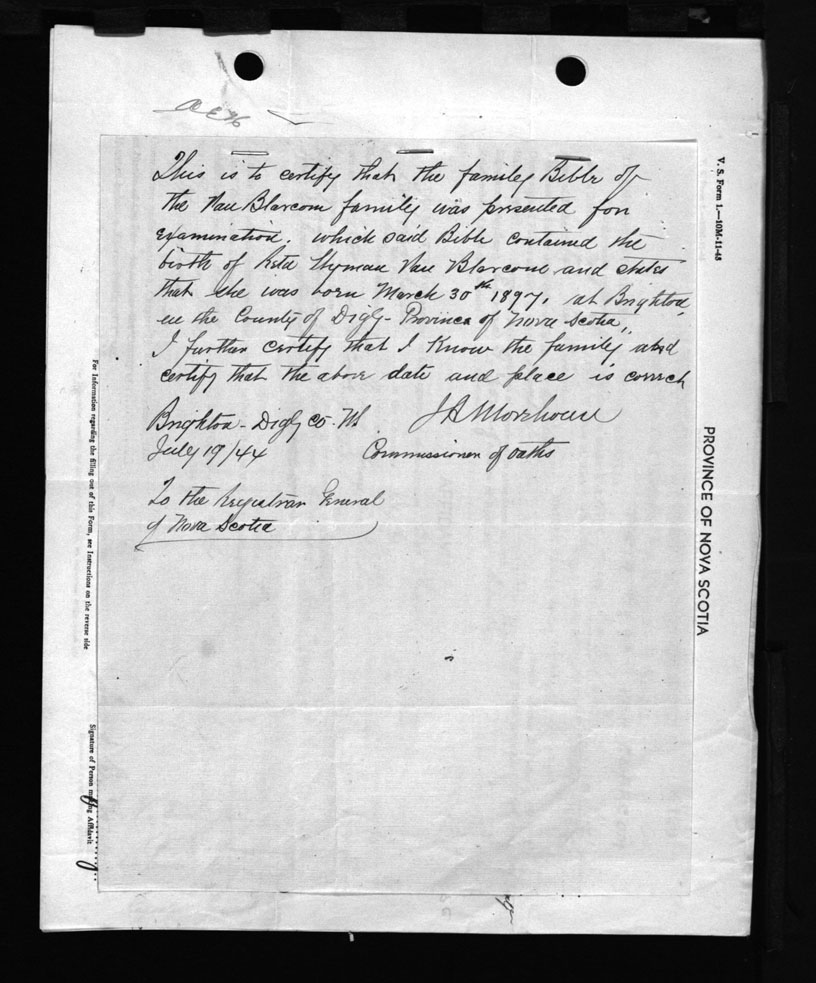 This is to certify that the family Bible of
the Van Blarcom family was presented for
examination. which said Bible contained the
birth of Reta Wyman Van Blarcom and states
that she was born March 30th 1897. at Brighton,
in the County of Digby - Province of Nova Scotia,
I further certify that I know the family and
certify that the above date and place is correct
Brighton - Digby Co. N.S.
J A Morehouse
July 19/44
Commissioner of Oaths
To the Registrar General
of Nova Scotia
V. S. Form 1.—10M-11-43
PROVINCE OF NOVA SCOTIA
For Information regarding the filling out of this Form, see Instructions on the reverse side
Signature of Person making Affidavit